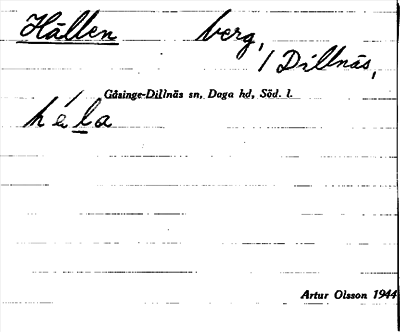 Hällen berg,
/ Dillnäs,
Gåsinge-Dillnäs sn, Daga hd, Söd. l.
héla
Artur Olsson 1944